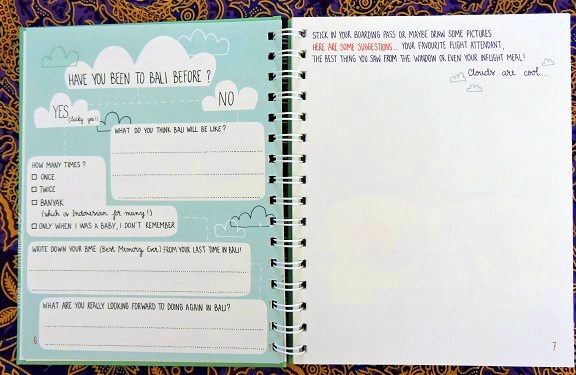 HAVE YOU BEEN TO BALI BEFORE ?
YES
(lucky you!)
NO
WHAT DO YOU THINK BALI WILL BE LIKE ?
HOW MANY TIMES ?
ONCE
TWICE
BANYAK
(which is Indonesian for many!)
ONLY WHEN I WAS A BABY, I DON'T REMEMBER
WRITE DOWN YOUR BME (Best Memory Ever) FROM YOUR LAST TIME IN BALI!
WHAT ARE YOU REALLY LOOKING FORWARD TO DOING AGAIN IN BALI?
6
STICK IN YOUR BOARDING PASS OR MAYBE DRAW SOME PICTURES
HERE ARE SOME SUGGESTIONS... YOUR FAVOURITE FLIGHT ATTENDANT,
THE BEST THING YOU SAW FROM THE WINDOW OR EVEN YOUR INFLIGHT MEAL!
Clouds are cool...
7